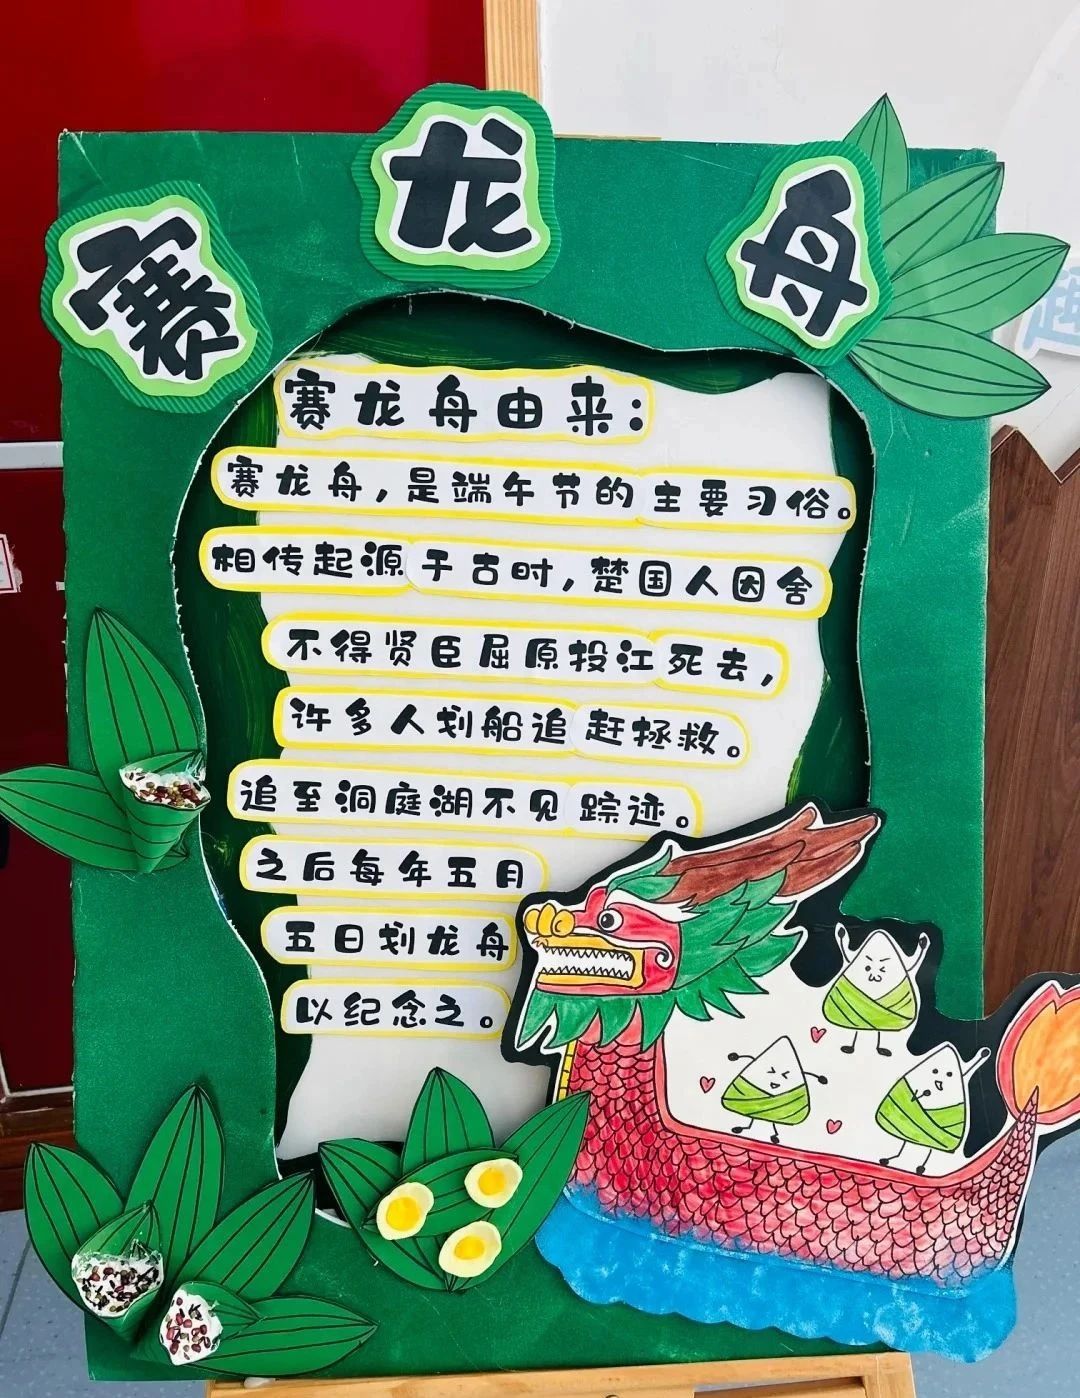 赛龙舟
赛龙舟由来:
赛龙舟,是端午节的主要习俗。
相传起源于古时,楚国人因舍
不得贤臣屈原投江死去,
许多人划船追赶拯救。
追至洞庭湖不见踪迹。
之后每年五月
五日划龙舟
以纪念之。